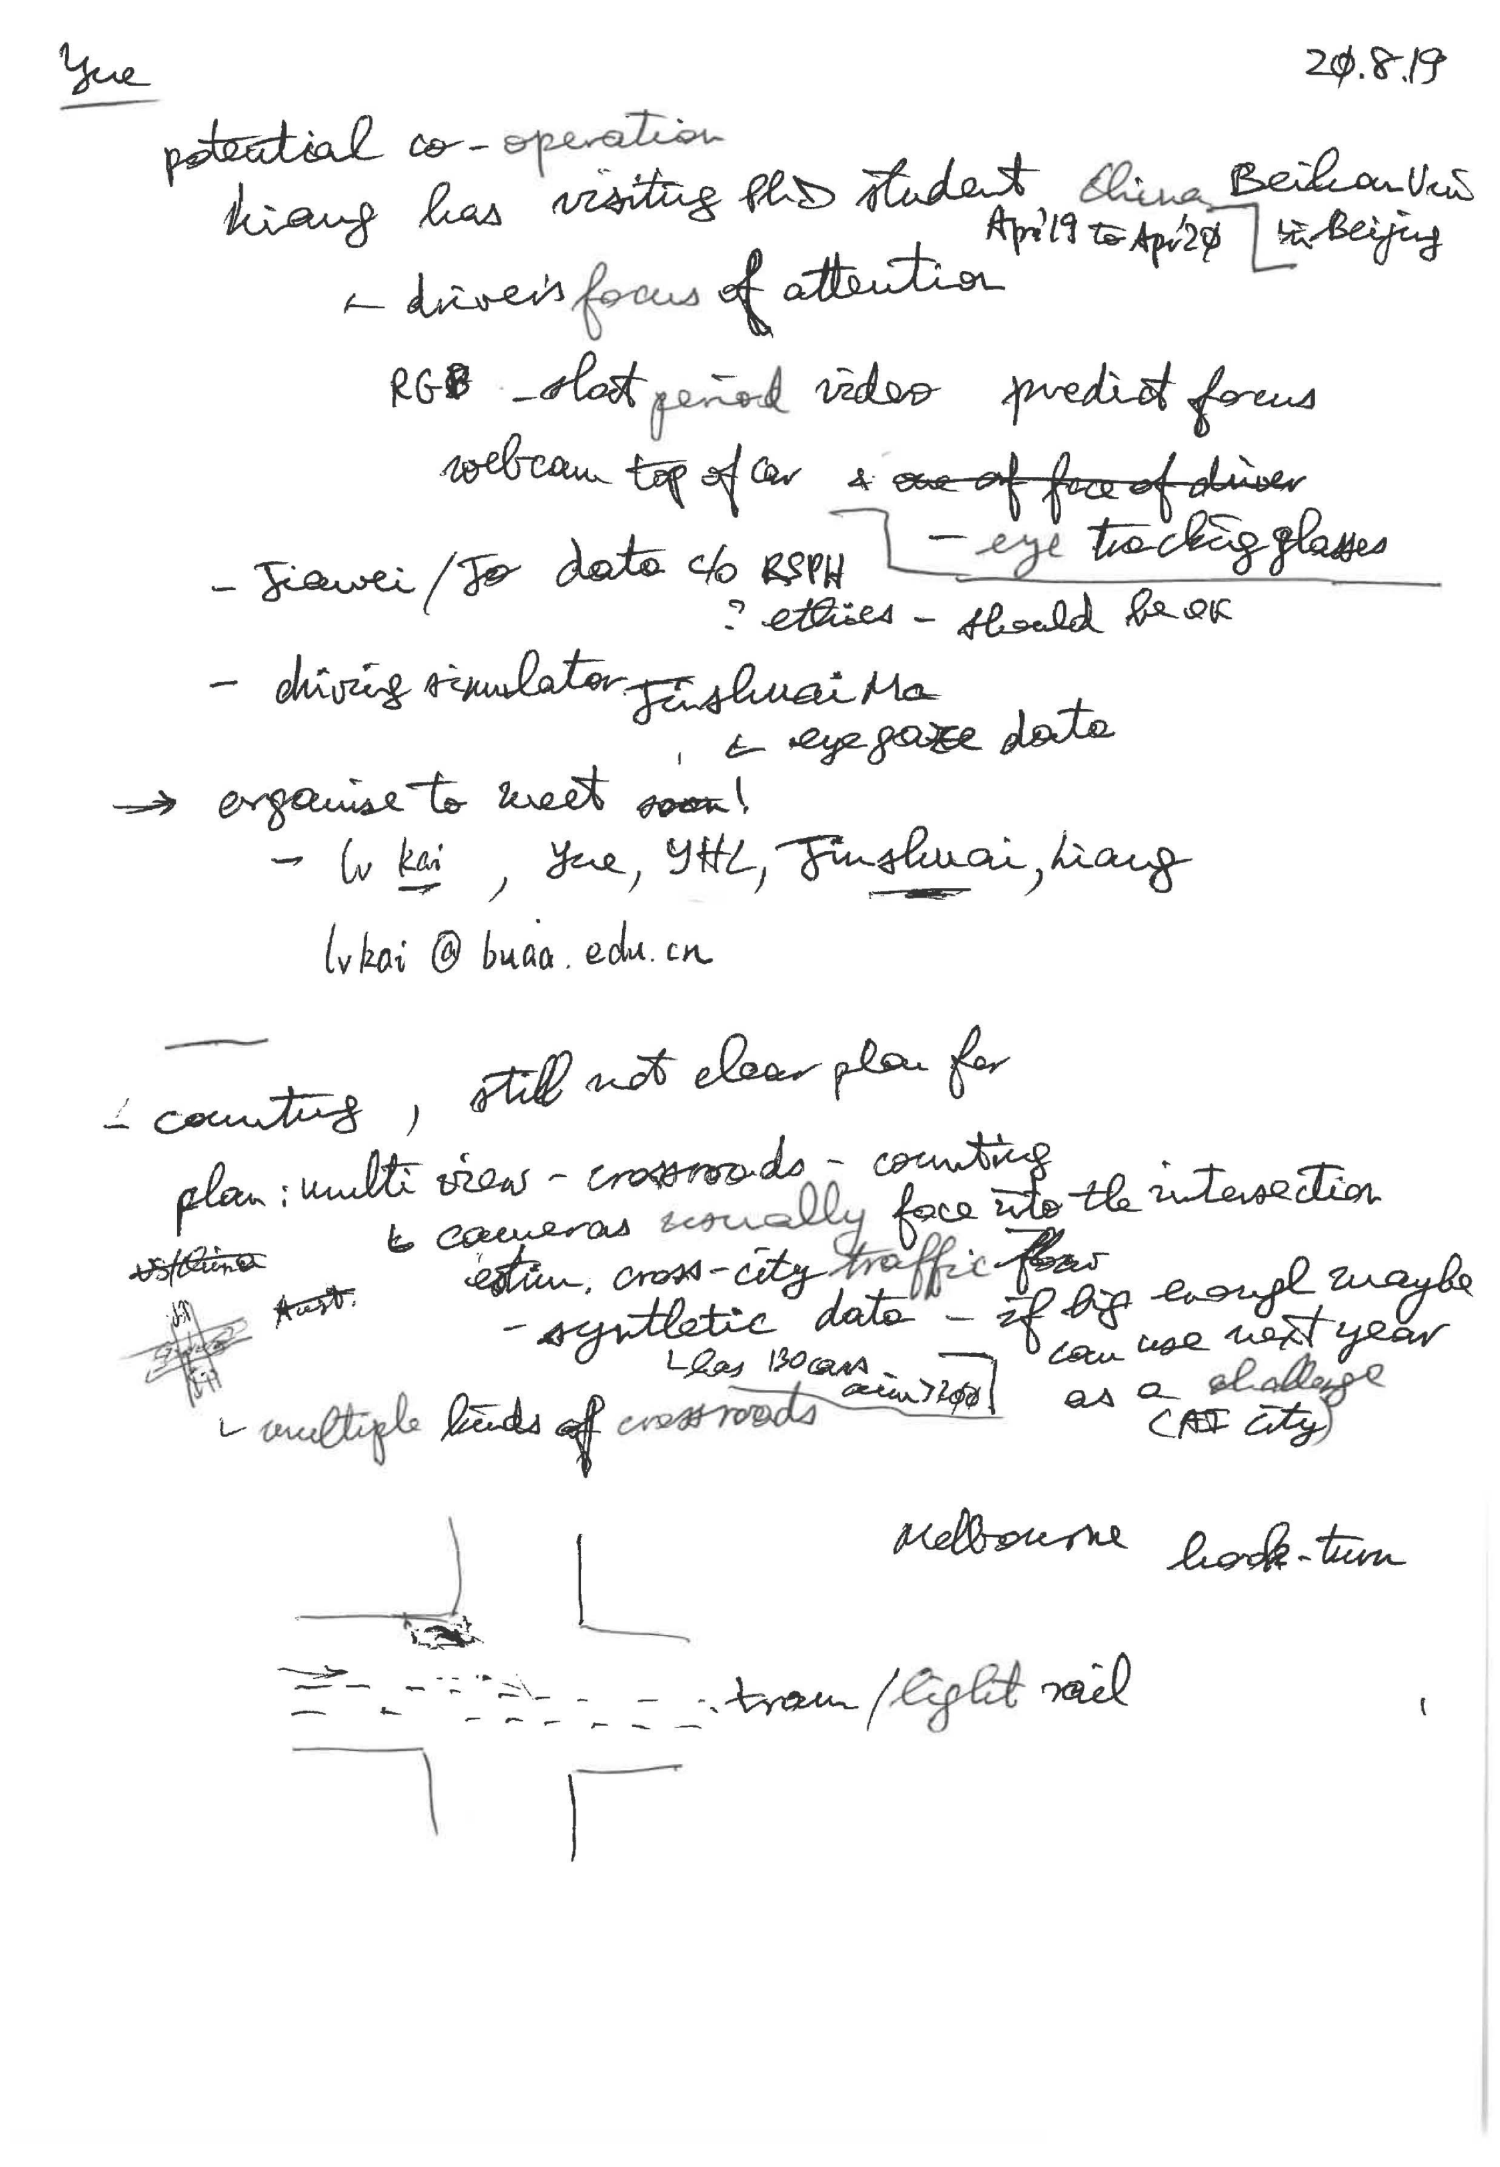 Yue 20.8.19
potential co-operation
Liang has visiting PhD student China Beihan Uni
Apr'19 to Apr'20 in Beijing
driver's focus of attention
RGB - short period video predict focus
webcam top of car & one of face of driver
- eye tracking glasses
- Jiawei/Jo data c/o RSPH
? ethics - should be OK
- driving simulator Jinshuai Ma
eye gaze data
→ organise to meet soon!
- lv kai, Yue, YHL, Jinshuai, Liang
lvkai @ buaa.edu.cn
- counting, still not clear plan for
plan: multi view - crossroads - counting
cameras usually face into the intersection
estim. cross-city traffic flow
vs China
Aust.
- synthetic data - if big enough maybe
can use next year
has 130 cars
aim >200
as a challenge
(AI city)
multiple kinds of crossroads
Melbourne hook-turn
tram/light rail